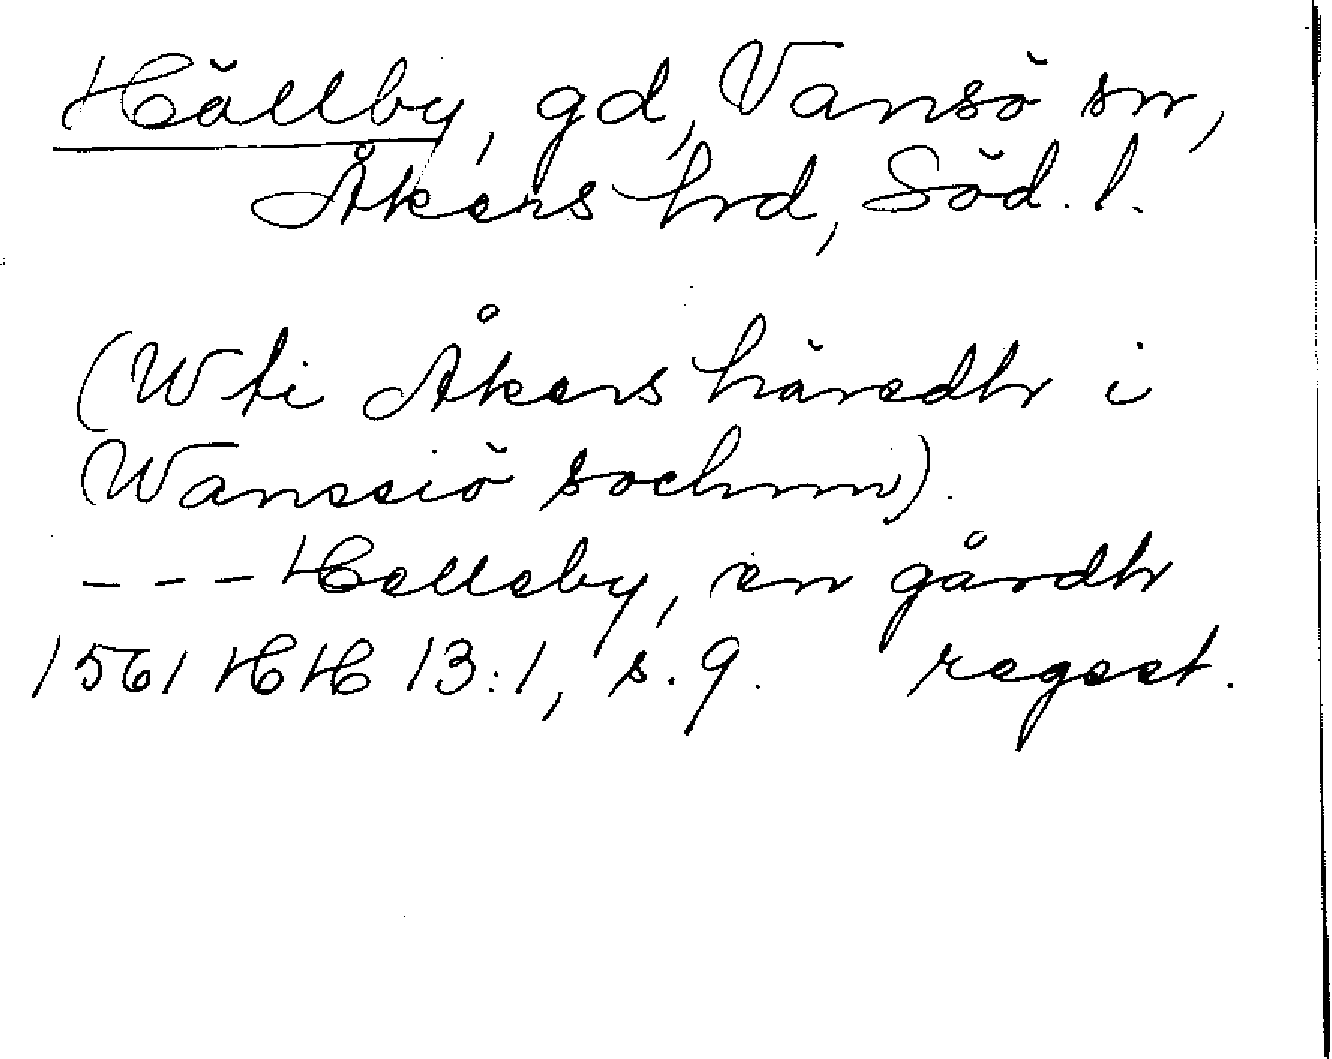 Hällby, gd, Vansö sn,
Åkers hrd, Söd. l.
(Wti Åkers häredh i
Wanssiö sochnn).
--- Helleby, en gårdh
1561 HH 13:1, s. 9. regest.